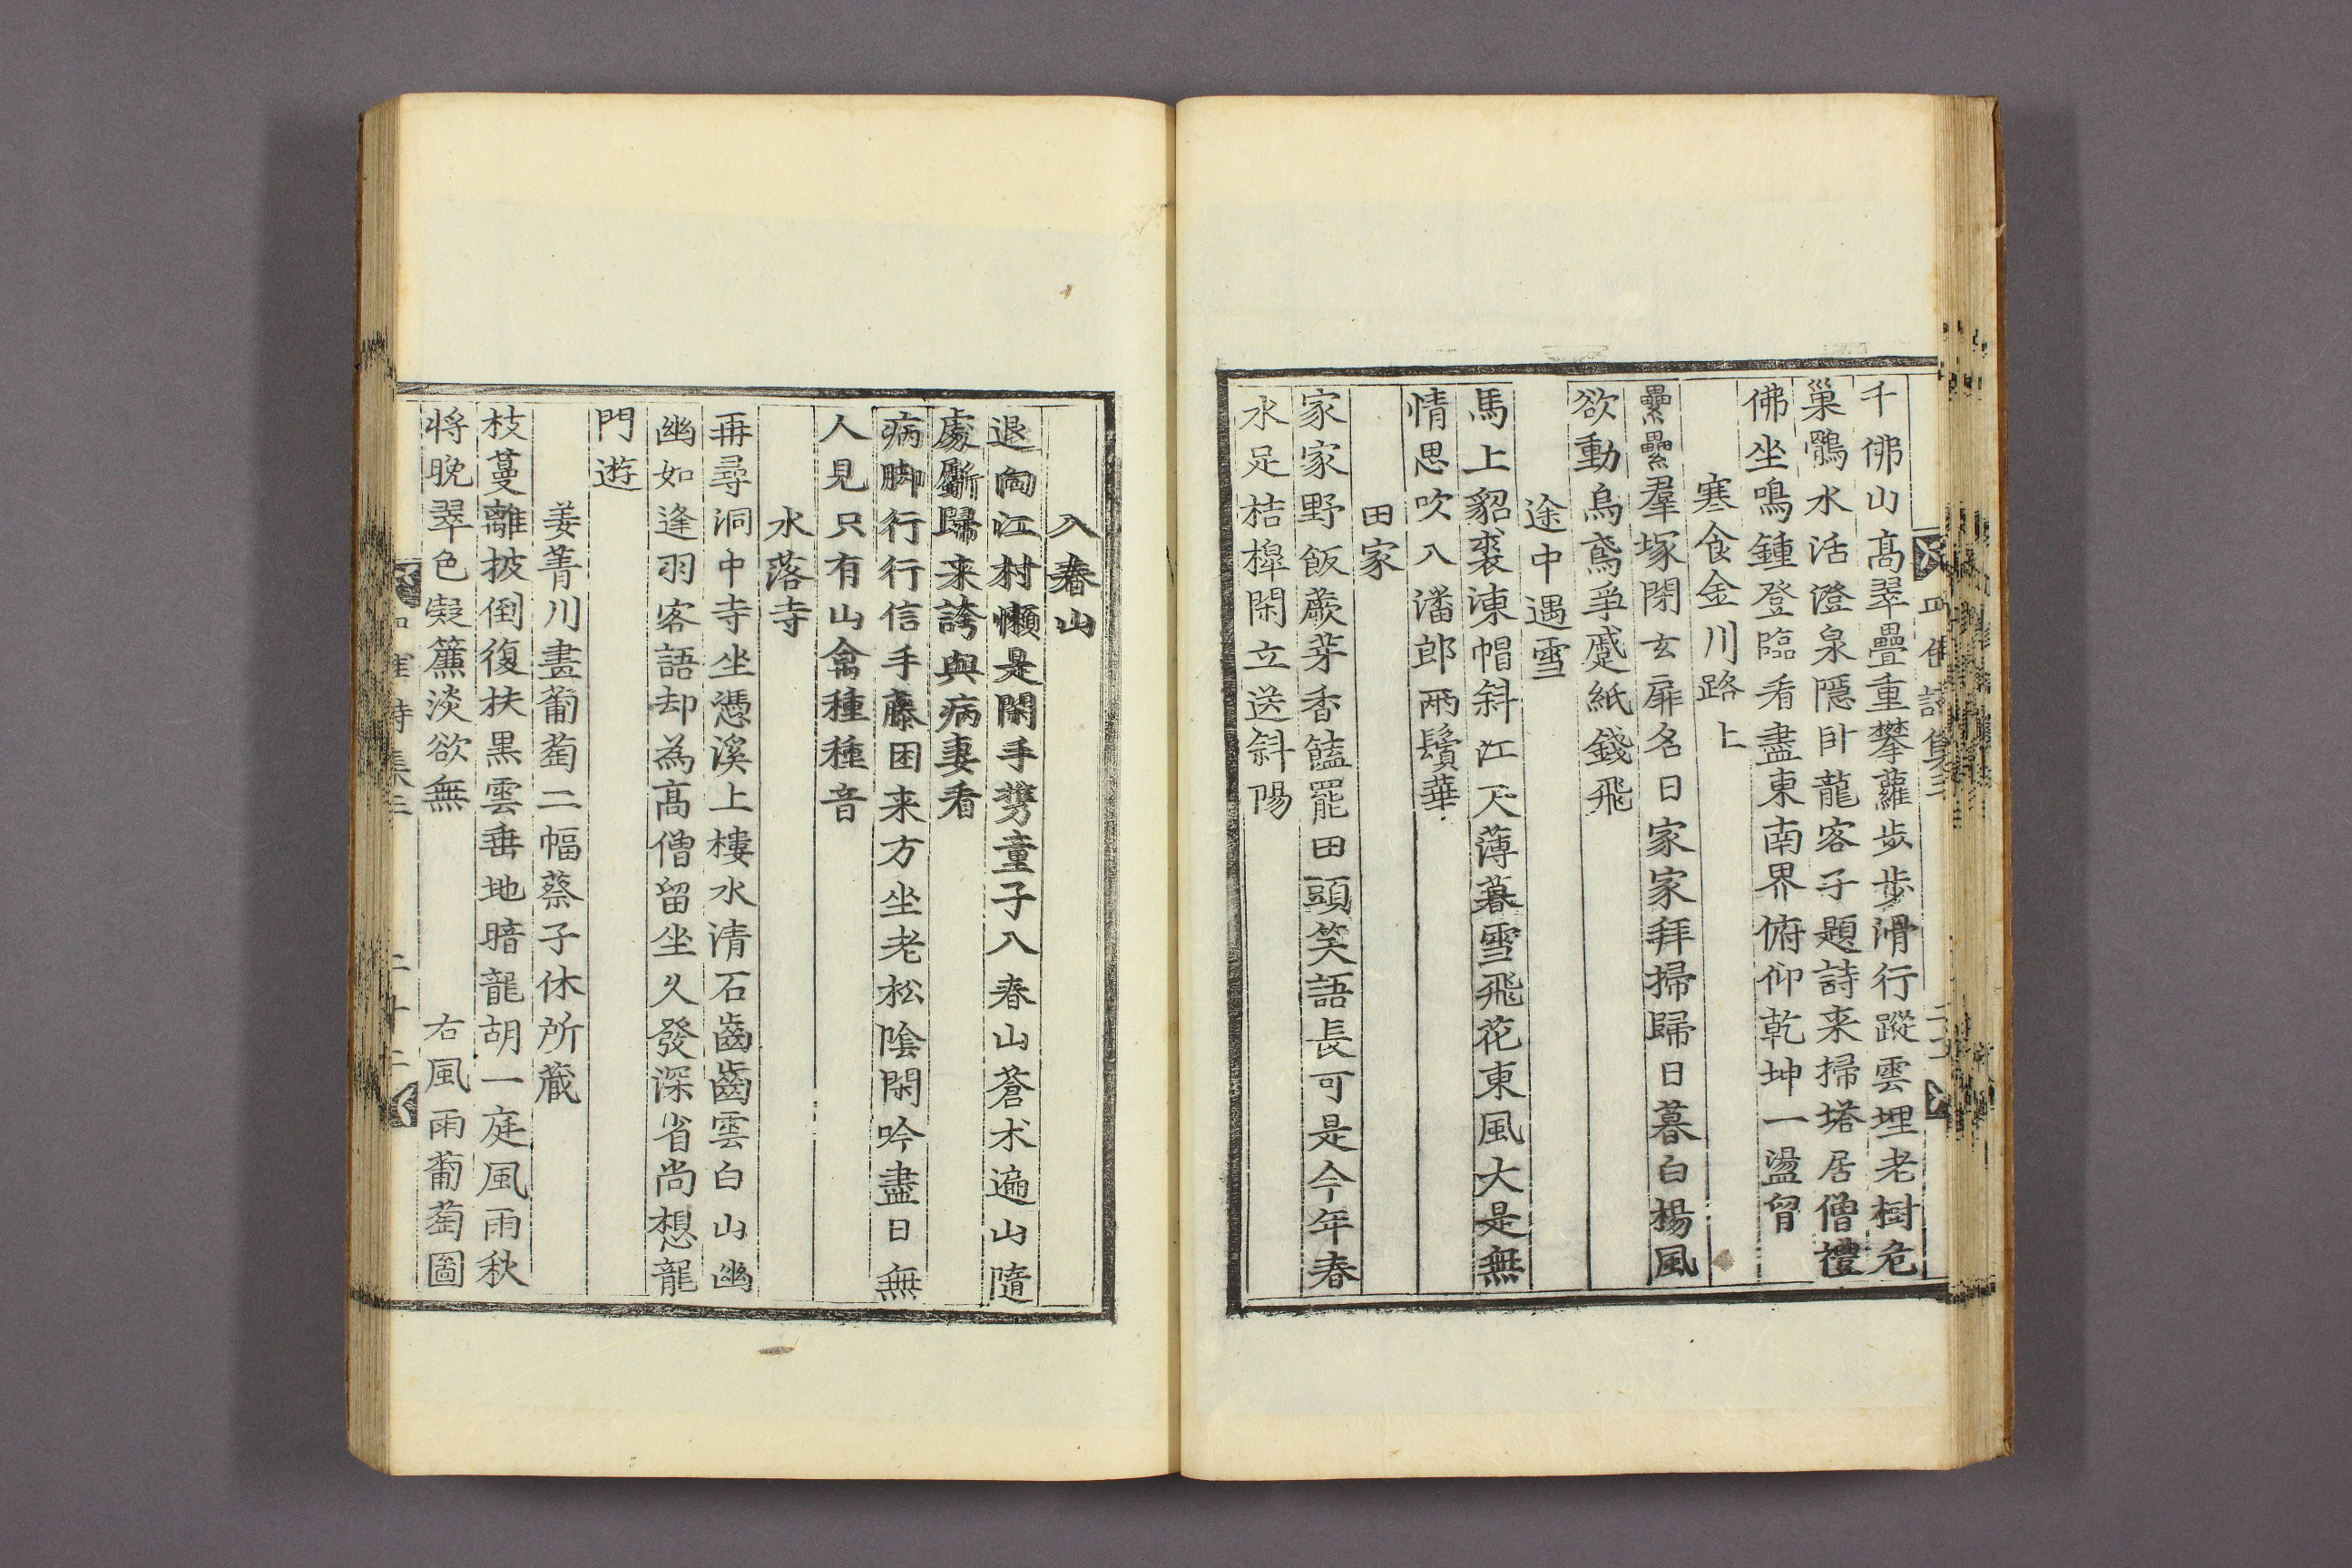 千佛山高翠疊重攀蘿步步滑行蹤雲埋老樹危
巢鶻水活澄泉隱卧龍客子題詩来掃塔居僧禮
佛坐鳴鍾登臨看盡東南界俯仰乾坤一盪胷
寒食金川路上
纍纍羣塚閉玄扉名日家家拜掃歸日暮白楊風
欲動烏鳶爭蹙紙錢飛
途中遇雪
馬上貂裘凍帽斜江天薄暮雪飛花東風大是無
情思吹入潘郎兩鬢華
田家
家家野飯蕨芽香饁罷田頭笑語長可是今年春
水足桔橰閑立送斜陽
入春山
退陶江村懶是閑手携童子入春山蒼朮遍山隨
處斸歸来誇與病妻看
病脚行行信手藤困来方坐老松陰閑吟盡日無
人見只有山禽種種音
水落寺
再尋洞中寺坐憑溪上樓水清石齒齒雲白山幽
幽如逢羽客語却為高僧留坐久發深省尚想龍
門遊
姜菁川畫葡萄二幅蔡子休所蔵
枝蔓離披倒復扶黒雲垂地暗龍胡一庭風雨秋
将晚翠色凝簾淡欲無
右風雨葡萄圖
詩集三
二十二